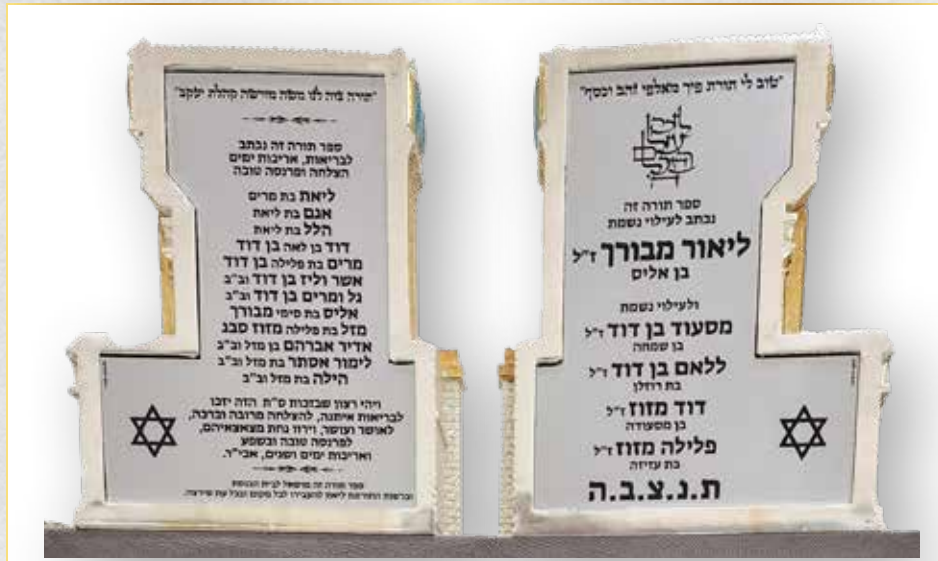 "טוב לי תורת פיך מאלפי זהב וכסף"
ספר תורה זה
נכתב לעילוי נשמת
ליאור מבורך ז"ל
בן אליס
ולעילוי נשמת
מסעוד בן דוד ז"ל
בן שמחה
ללאם בן דוד ז"ל
בת רוזלן
דוד מזוז ז"ל
בן מסעודה
פלילה מזוז ז"ל
בת עזיזה
ת.נ.צ.ב.ה
"תורה צוה לנו משה מורשה קהלת יעקב"
ספר תורה זה נכתב
לבריאות, אריכות ימים
הצלחה ופרנסה טובה
ליאת בת מרים
אגם בת ליאת
הלל בת ליאת
דוד בן לאה בן דוד
מרים בת פלילה בן דוד
אשר וליז בן דוד וב"ב
גל ומרים בן דוד וב"ב
אליס בת סימי מבורך
מזל בת פלילה מזוז סבג
אדיר אברהם בן מזל וב"ב
לימור אסתר בת מזל וב"ב
הילה בת מזל וב"ב
ויהי רצון שבזכות ס"ת הזה יזכו
לבריאות איתנה, להצלחה מרובה וברכה,
לאושר ועושר, וירוו נחת מצאצאיהם,
לפרנסה טובה ובשפע
ואריכות ימים ושנים, אכי"ר.
ספר תורה זה מושאל לבית הכנסת
וברשות התורמת ליאת להעבירו לכל מקום ובכל עת שירצה.